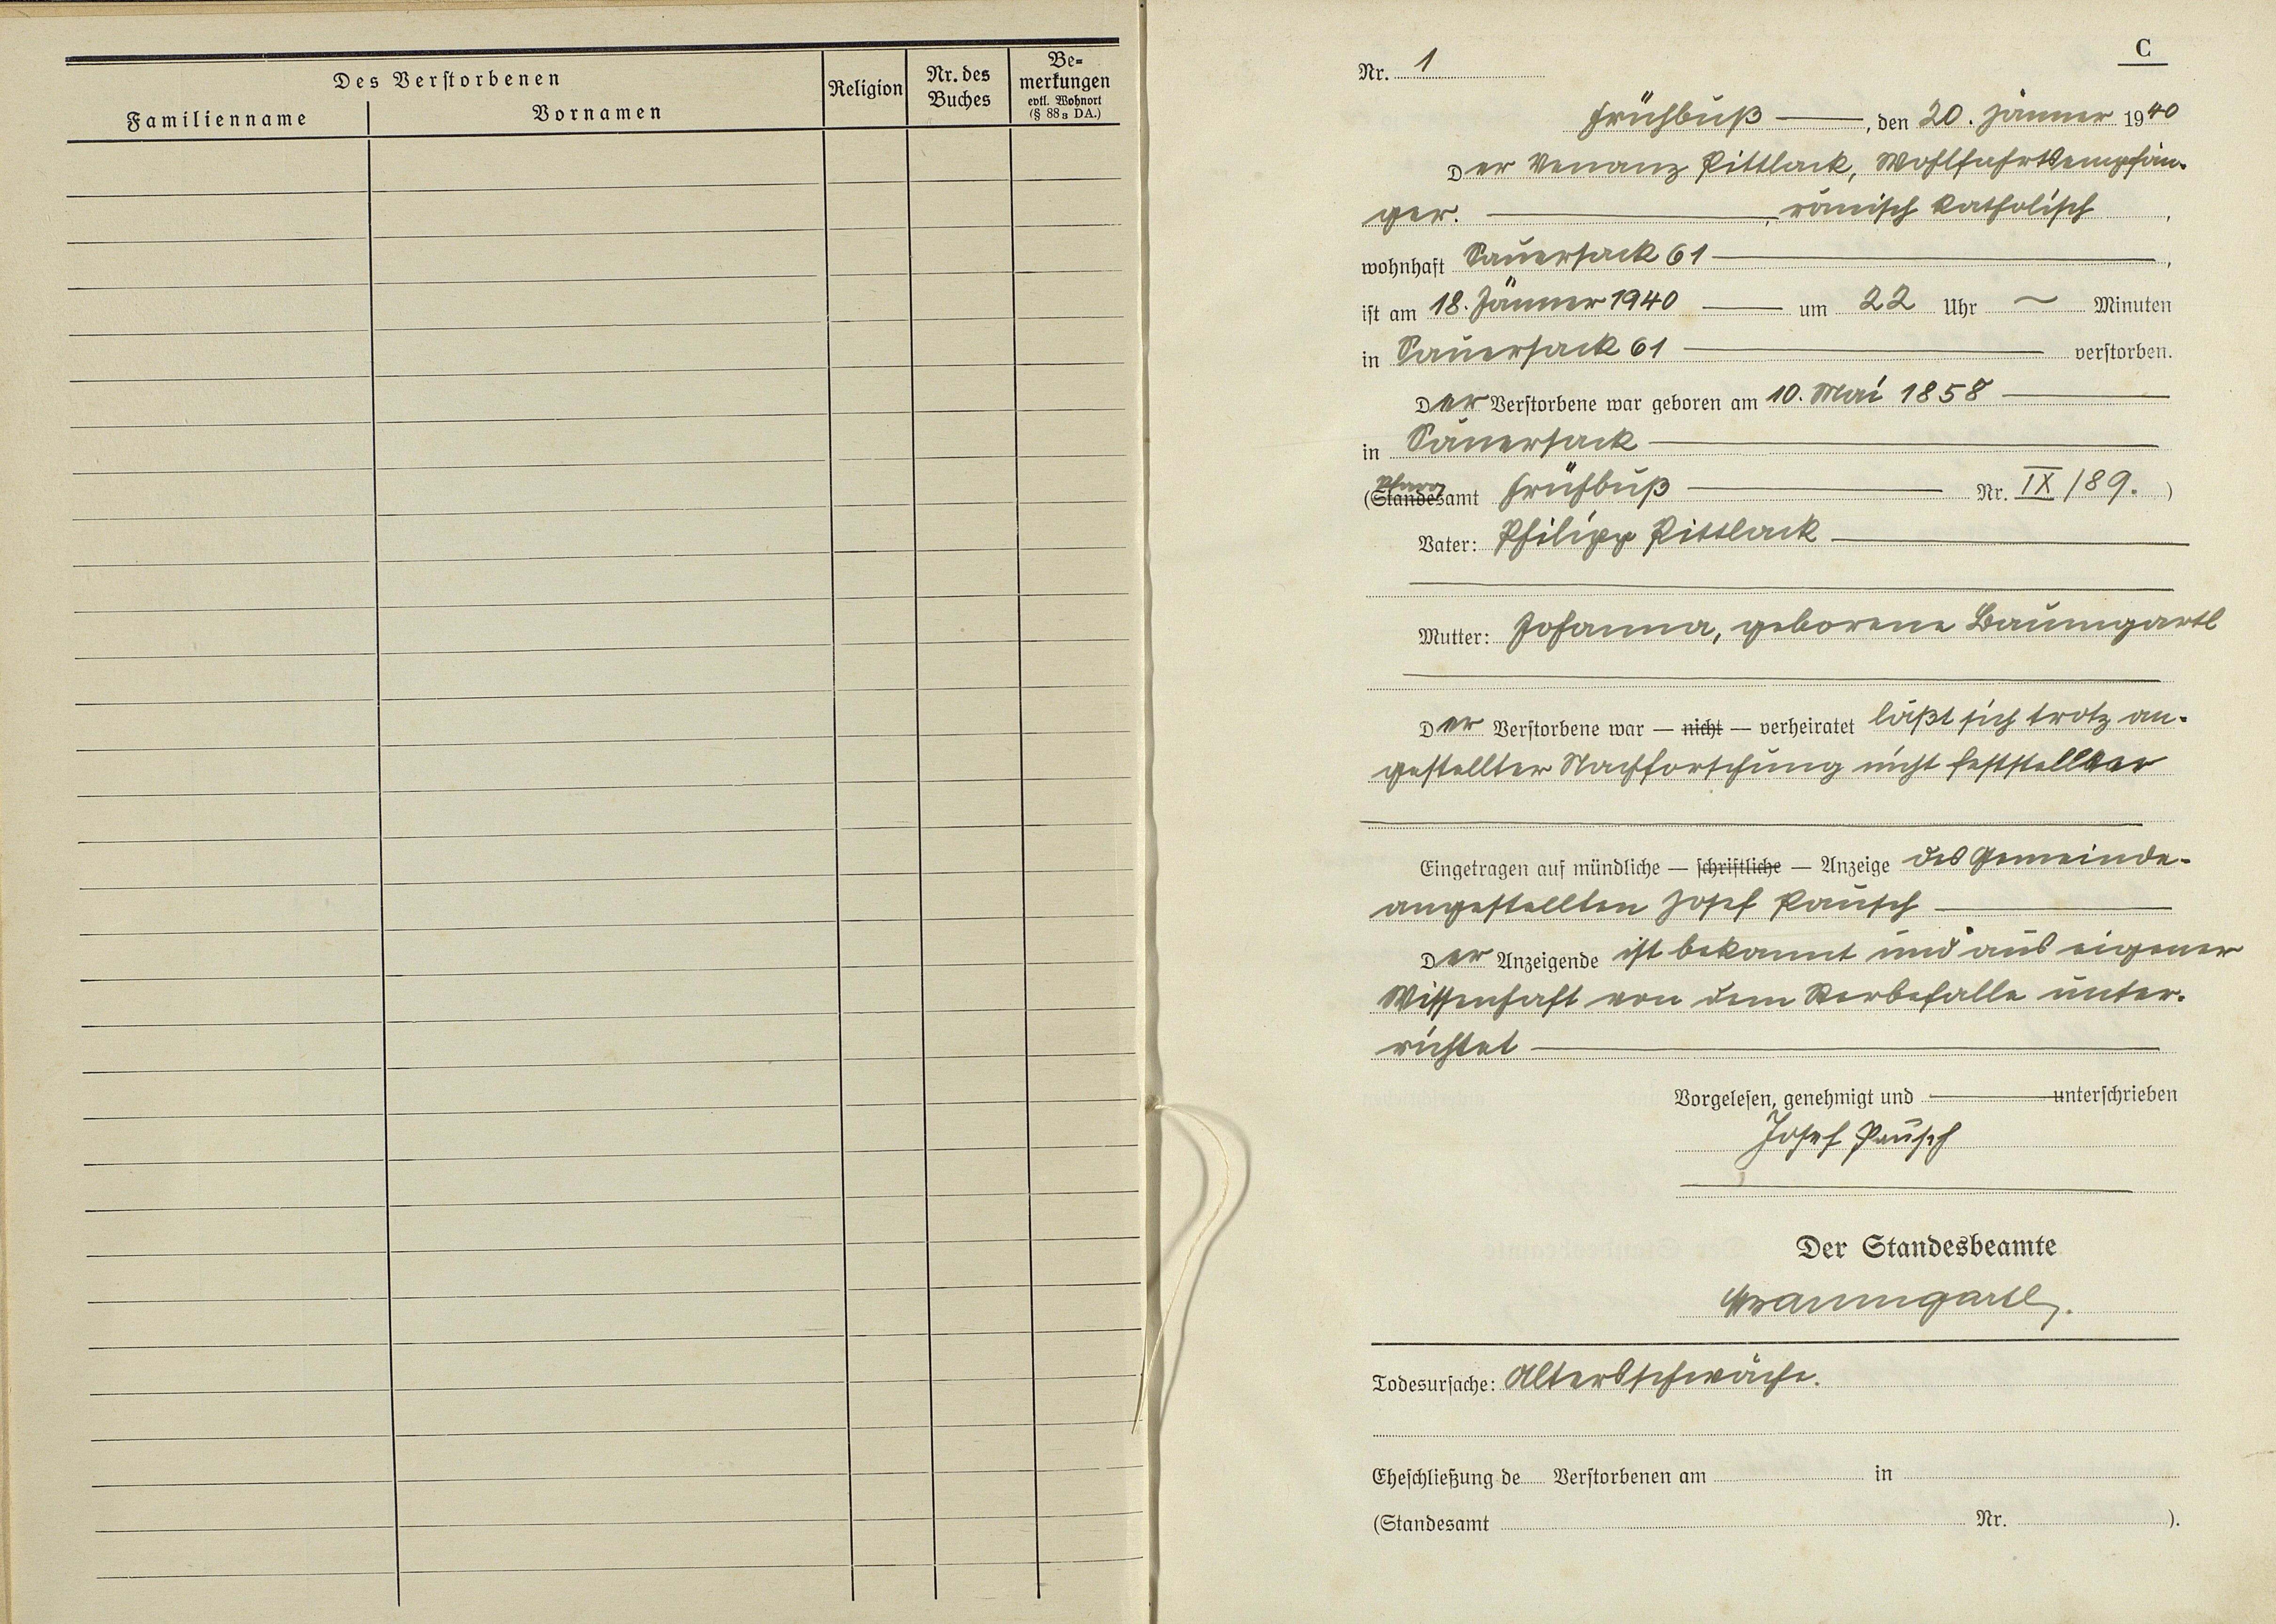 Des Verstorbenen
Familienname
Vornamen
Religion
Nr. des
Buches
Be-
merkungen
evtl. Wohnort
(§ 88 a DA.)
C
Nr. 1
Frühbuß ——, den 20. Jänner 1940
Der Venanz Pittlack, Wohlfahrtsempfän-
ger. ——, römisch katholisch,
wohnhaft Sauersack 61 ——,
ist am 18. Jänner 1940 —— um 22 Uhr ~ Minuten
in Sauersack 61 —— verstorben.
Der Verstorbene war geboren am 10. Mai 1858 ——
in Sauersack ——
Pfarr
(Standesamt Frühbuß —— Nr. IX/89.)
Vater: Philipp Pittlack ——
Mutter: Johanna, geborene Baumgartl
Der Verstorbene war — nicht — verheiratet läßt sich trotz an-
gestellter Nachforschung nicht feststellbar
Eingetragen auf mündliche — schriftliche — Anzeige des Gemeinde-
angestellten Josef Pausch ——
Der Anzeigende ist bekannt und aus eigener
Wissenschaft von dem Sterbefalle unter-
richtet ——
Vorgelesen, genehmigt und —— unterschrieben
Josef Pausch
Der Standesbeamte
Baumgartl.
Todesursache: Altersschwäche.
Eheschließung de Verstorbenen am in
(Standesamt Nr. ).